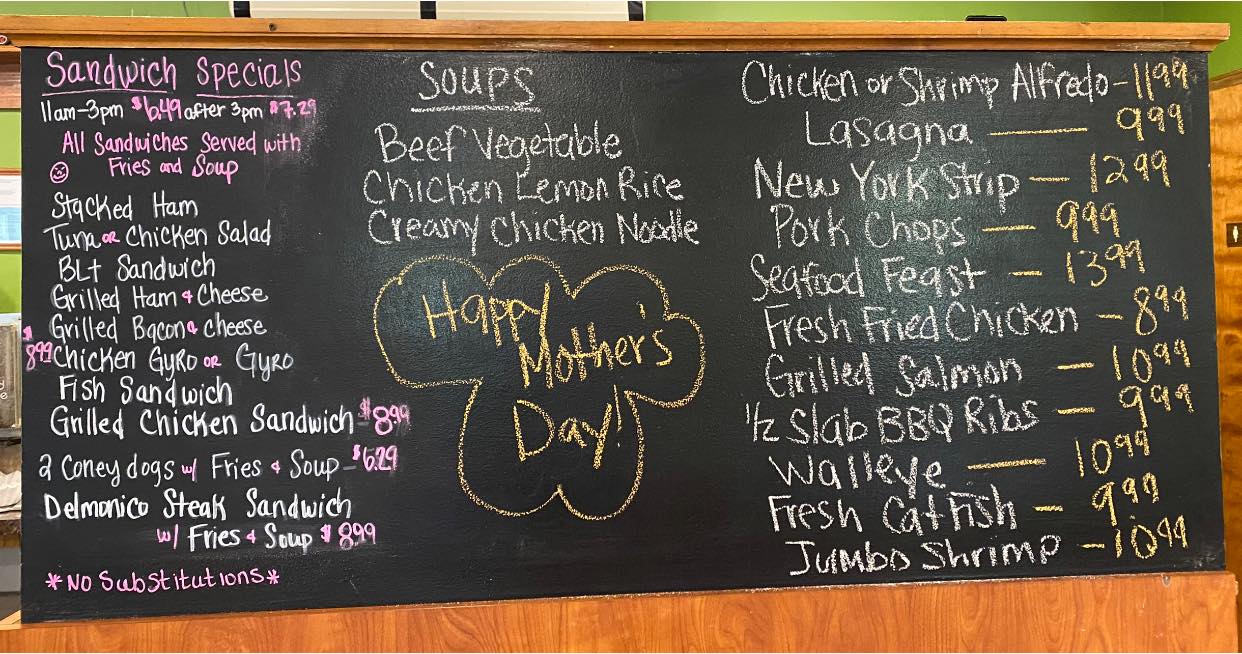 Sandwich Specials
11am-3pm $6.49 after 3pm $7.29
All Sandwiches Served with
Fries and Soup
Stacked Ham
Tuna or Chicken Salad
BLt Sandwich
Grilled Ham & Cheese
Grilled Bacon & cheese
$8.99 Chicken Gyro or Gyro
Fish Sandwich
Grilled Chicken Sandwich - $8.99
2 Coney dogs w/ Fries & Soup - $6.29
Delmonico Steak Sandwich
w/ Fries & Soup $8.99
*No Substitutions*
Soups
Beef Vegetable
Chicken Lemon Rice
Creamy Chicken Noodle
Happy
Mother's
Day!
Chicken or Shrimp Alfredo - 1199
Lasagna — 999
New York Strip — 1299
Pork Chops — 999
Seafood Feast — 1399
Fresh Fried Chicken - 899
Grilled Salmon — 1099
1/2 Slab BBQ Ribs — 999
Walleye — 1099
Fresh Catfish — 999
Jumbo Shrimp - 1099